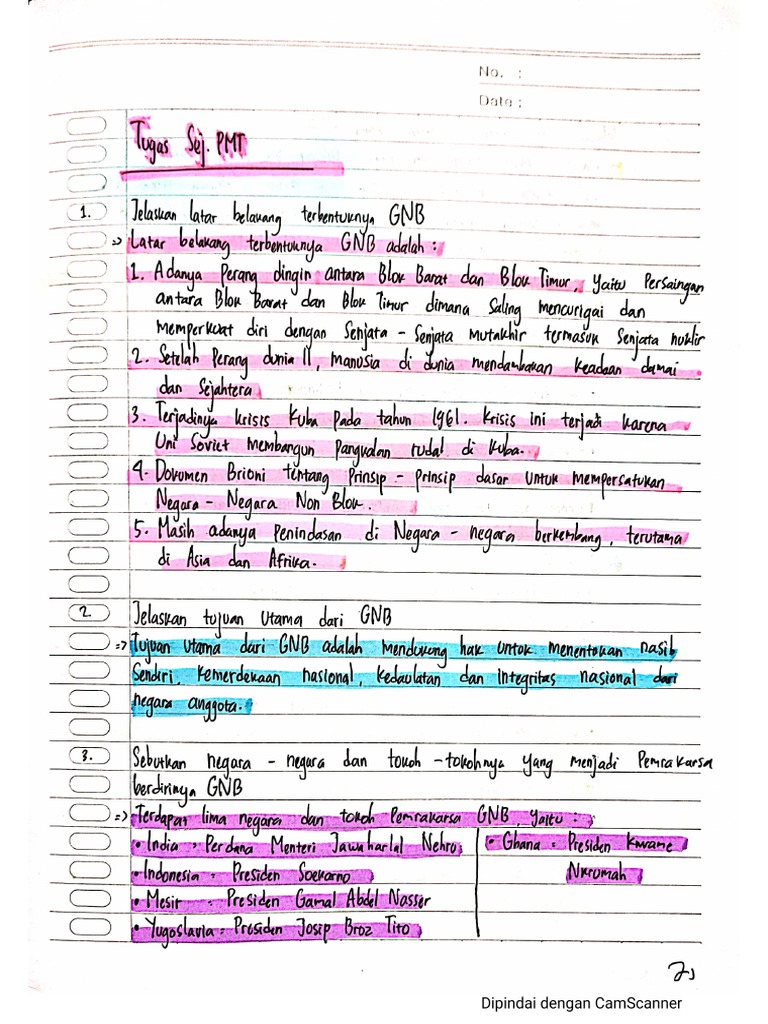 No. :
Date :
Tugas Sej. PMT
1. Jelaskan latar belakang terbentuknya GNB
=> Latar belakang terbentuknya GNB adalah :
1. Adanya Perang dingin antara Blok Barat dan Blok Timur, yaitu Persaingan
antara Blok Barat dan Blok Timur dimana Saling mencurigai dan
memperkuat diri dengan Senjata - Senjata mutakhir termasuk Senjata nuklir
2. Setelah Perang dunia II, manusia di dunia mendambakan keadaan damai
dan Sejahtera
3. Terjadinya krisis Kuba pada tahun 1961. Krisis ini terjadi karena
Uni Soviet membangun pangkalan rudal di Kuba.
4. Dokumen Brioni tentang Prinsip - prinsip dasar untuk mempersatukan
Negara - Negara Non Blok.
5. Masih adanya Penindasan di Negara - negara berkembang, terutama
di Asia dan Afrika.
2. Jelaskan tujuan Utama dari GNB
=> Tujuan utama dari GNB adalah mendukung hak untuk menentukan nasib
Sendiri, kemerdekaan nasional, kedaulatan dan integritas nasional dari
negara anggota.
3. Sebutkan negara - negara dan tokoh - tokohnya yang menjadi Pemrakarsa
berdirinya GNB
=> Terdapat lima negara dan tokoh Pemrakarsa GNB, yaitu :
• India : Perdana Menteri Jawaharlal Nehru
• Indonesia : Presiden Soekarno
• Mesir : Presiden Gamal Abdel Nasser
• Yugoslavia : Presiden Josip Broz Tito
• Ghana : Presiden Kwame
Nkrumah
Dipindai dengan CamScanner